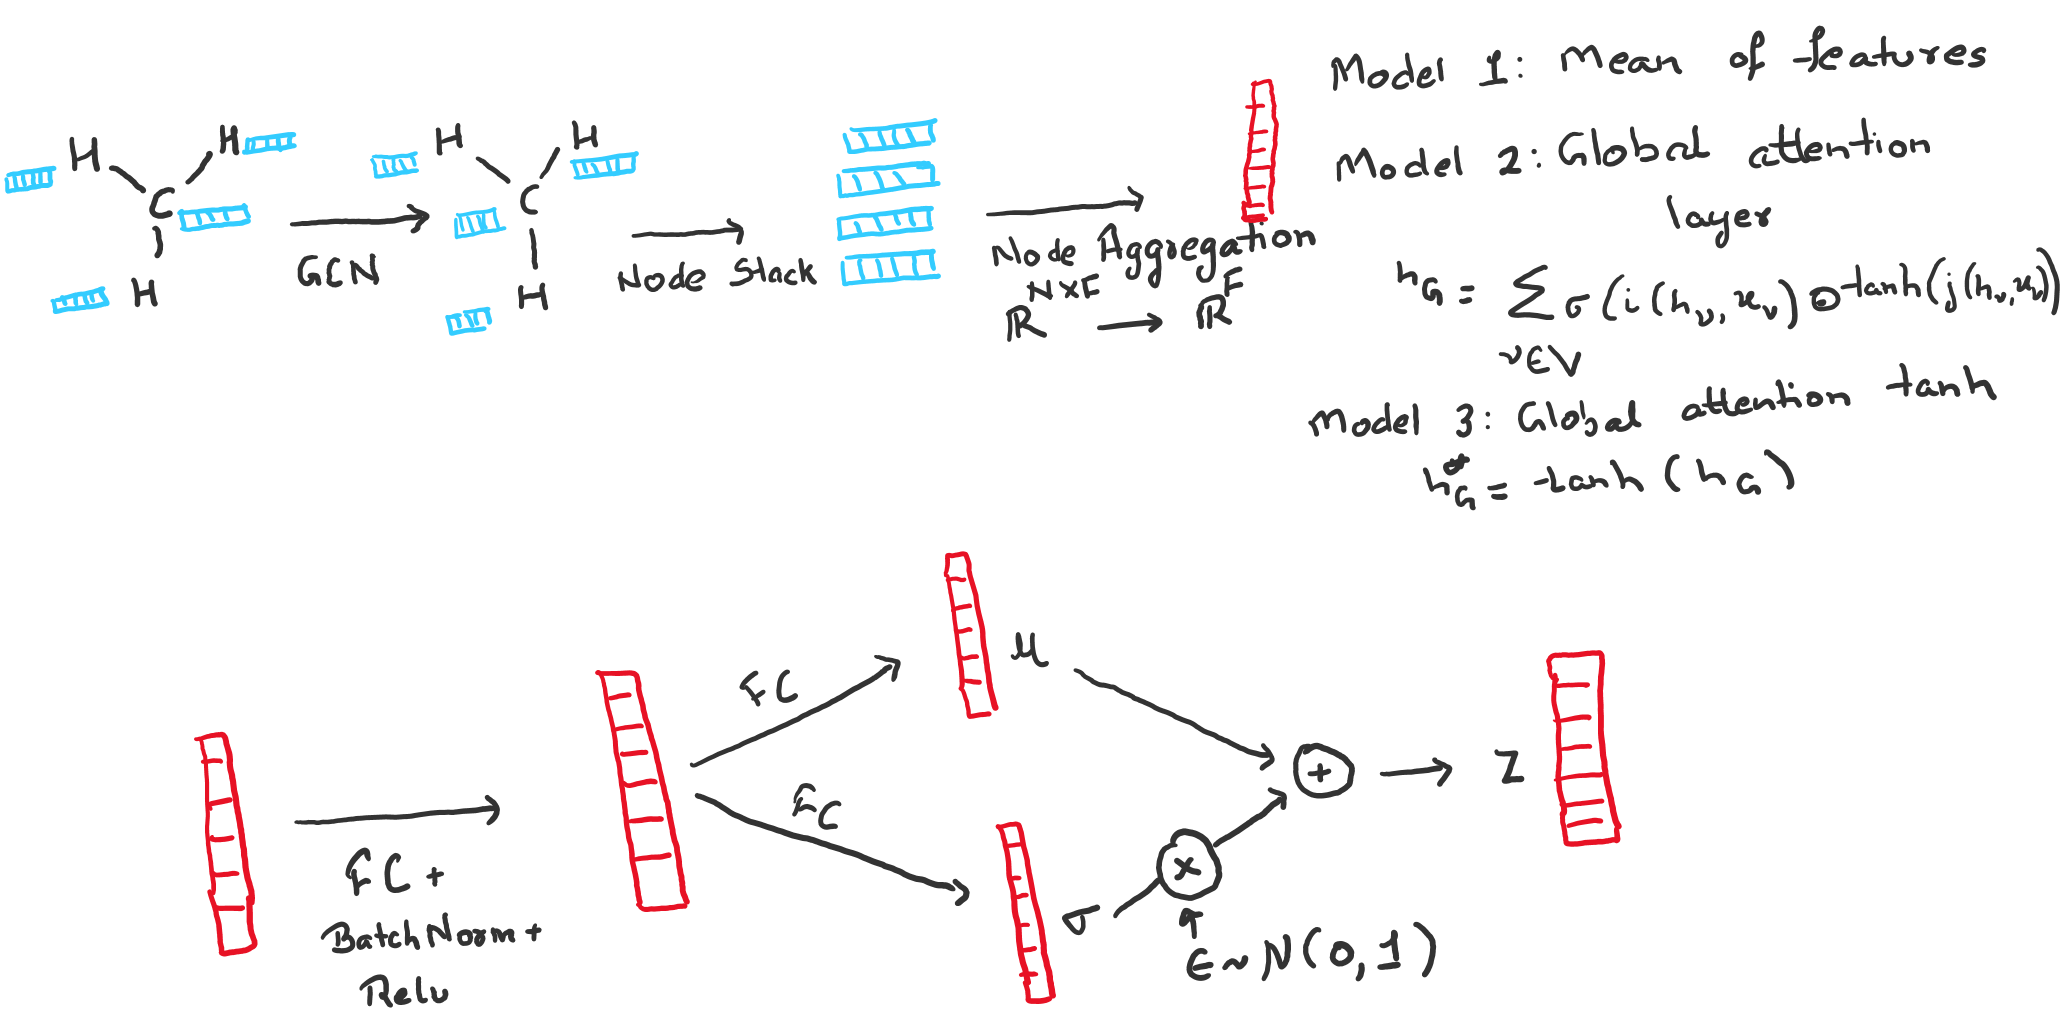 H H
C
H
GCN
H H
C
H
Node Stack
Node Aggregation
ℝ^{N×F} → ℝ^F
Model 1: Mean of features
Model 2: Global attention
layer
h_G = Σ_{v∈V} σ(i(h_v, x_v)) ⊙ tanh(j(h_v, x_v))
Model 3: Global attention tanh
h*_G = tanh(h_G)
FC +
BatchNorm +
Relu
FC
μ
FC
σ
×
+
ϵ ~ N(0,1)
Z